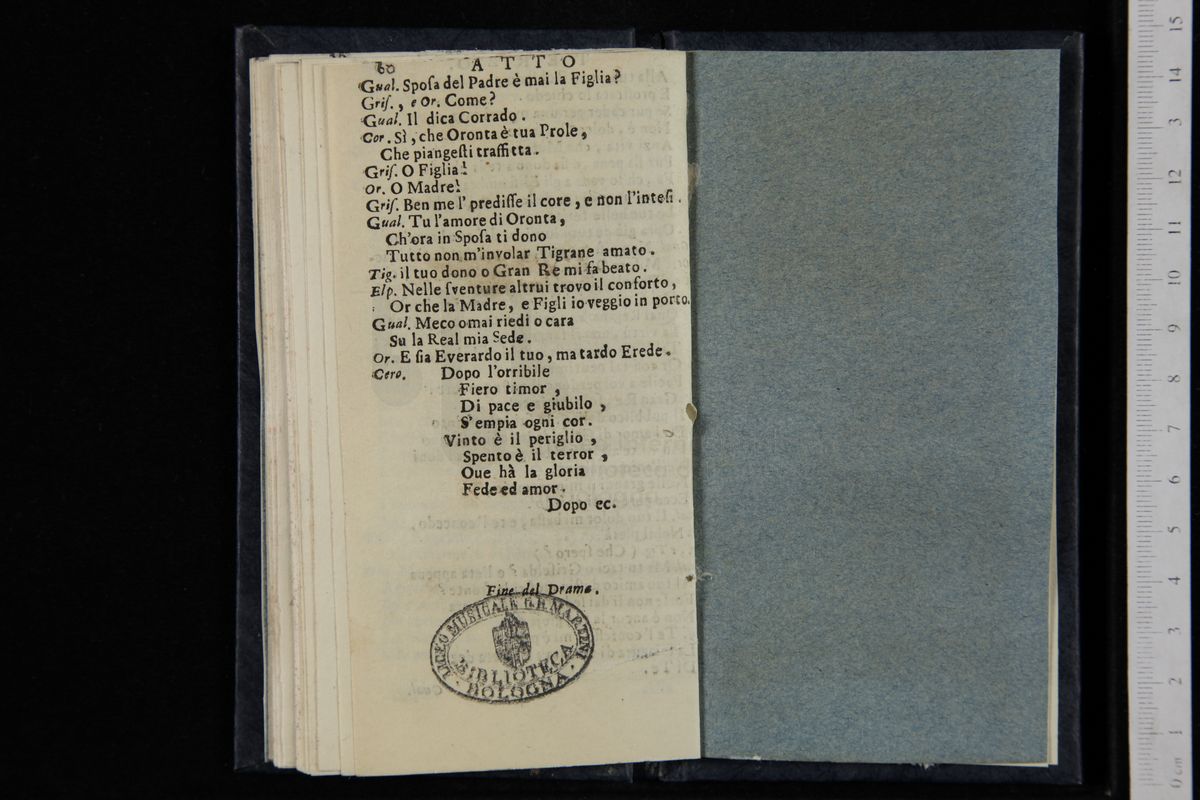 60 ATTO
Gual. Spoſa del Padre è mai la Figlia?
Griſ., e Or. Come?
Gual. Il dica Corrado.
Cor. Sì, che Oronta è tua Prole,
Che piangeſti traffitta.
Griſ. O Figlia!
Or. O Madre!
Griſ. Ben me l' prediſſe il core, e non l'inteſi.
Gual. Tu l'amore di Oronta,
Ch'ora in Spoſa ti dono
Tutto non m'involar Tigrane amato.
Tig. il tuo dono o Gran Re mi fa beato.
Elp. Nelle ſventure altrui trovo il conforto,
Or che la Madre, e Figli io veggio in porto.
Gual. Meco omai riedi o cara
Su la Real mia Sede.
Or. E ſia Everardo il tuo, ma tardo Erede.
Cero. Dopo l'orribile
Fiero timor,
Di pace e giubilo,
S'empia ogni cor.
Vinto è il periglio,
Spento è il terror,
Oue hà la gloria
Fede ed amor.
Dopo ec.
Fine del Drama.
LICEO MUSICALE G.B. MARTINI
BIBLIOTECA
· BOLOGNA ·
15
14
13
12
11
10
9
8
7
6
5
4
3
2
1
0 cm